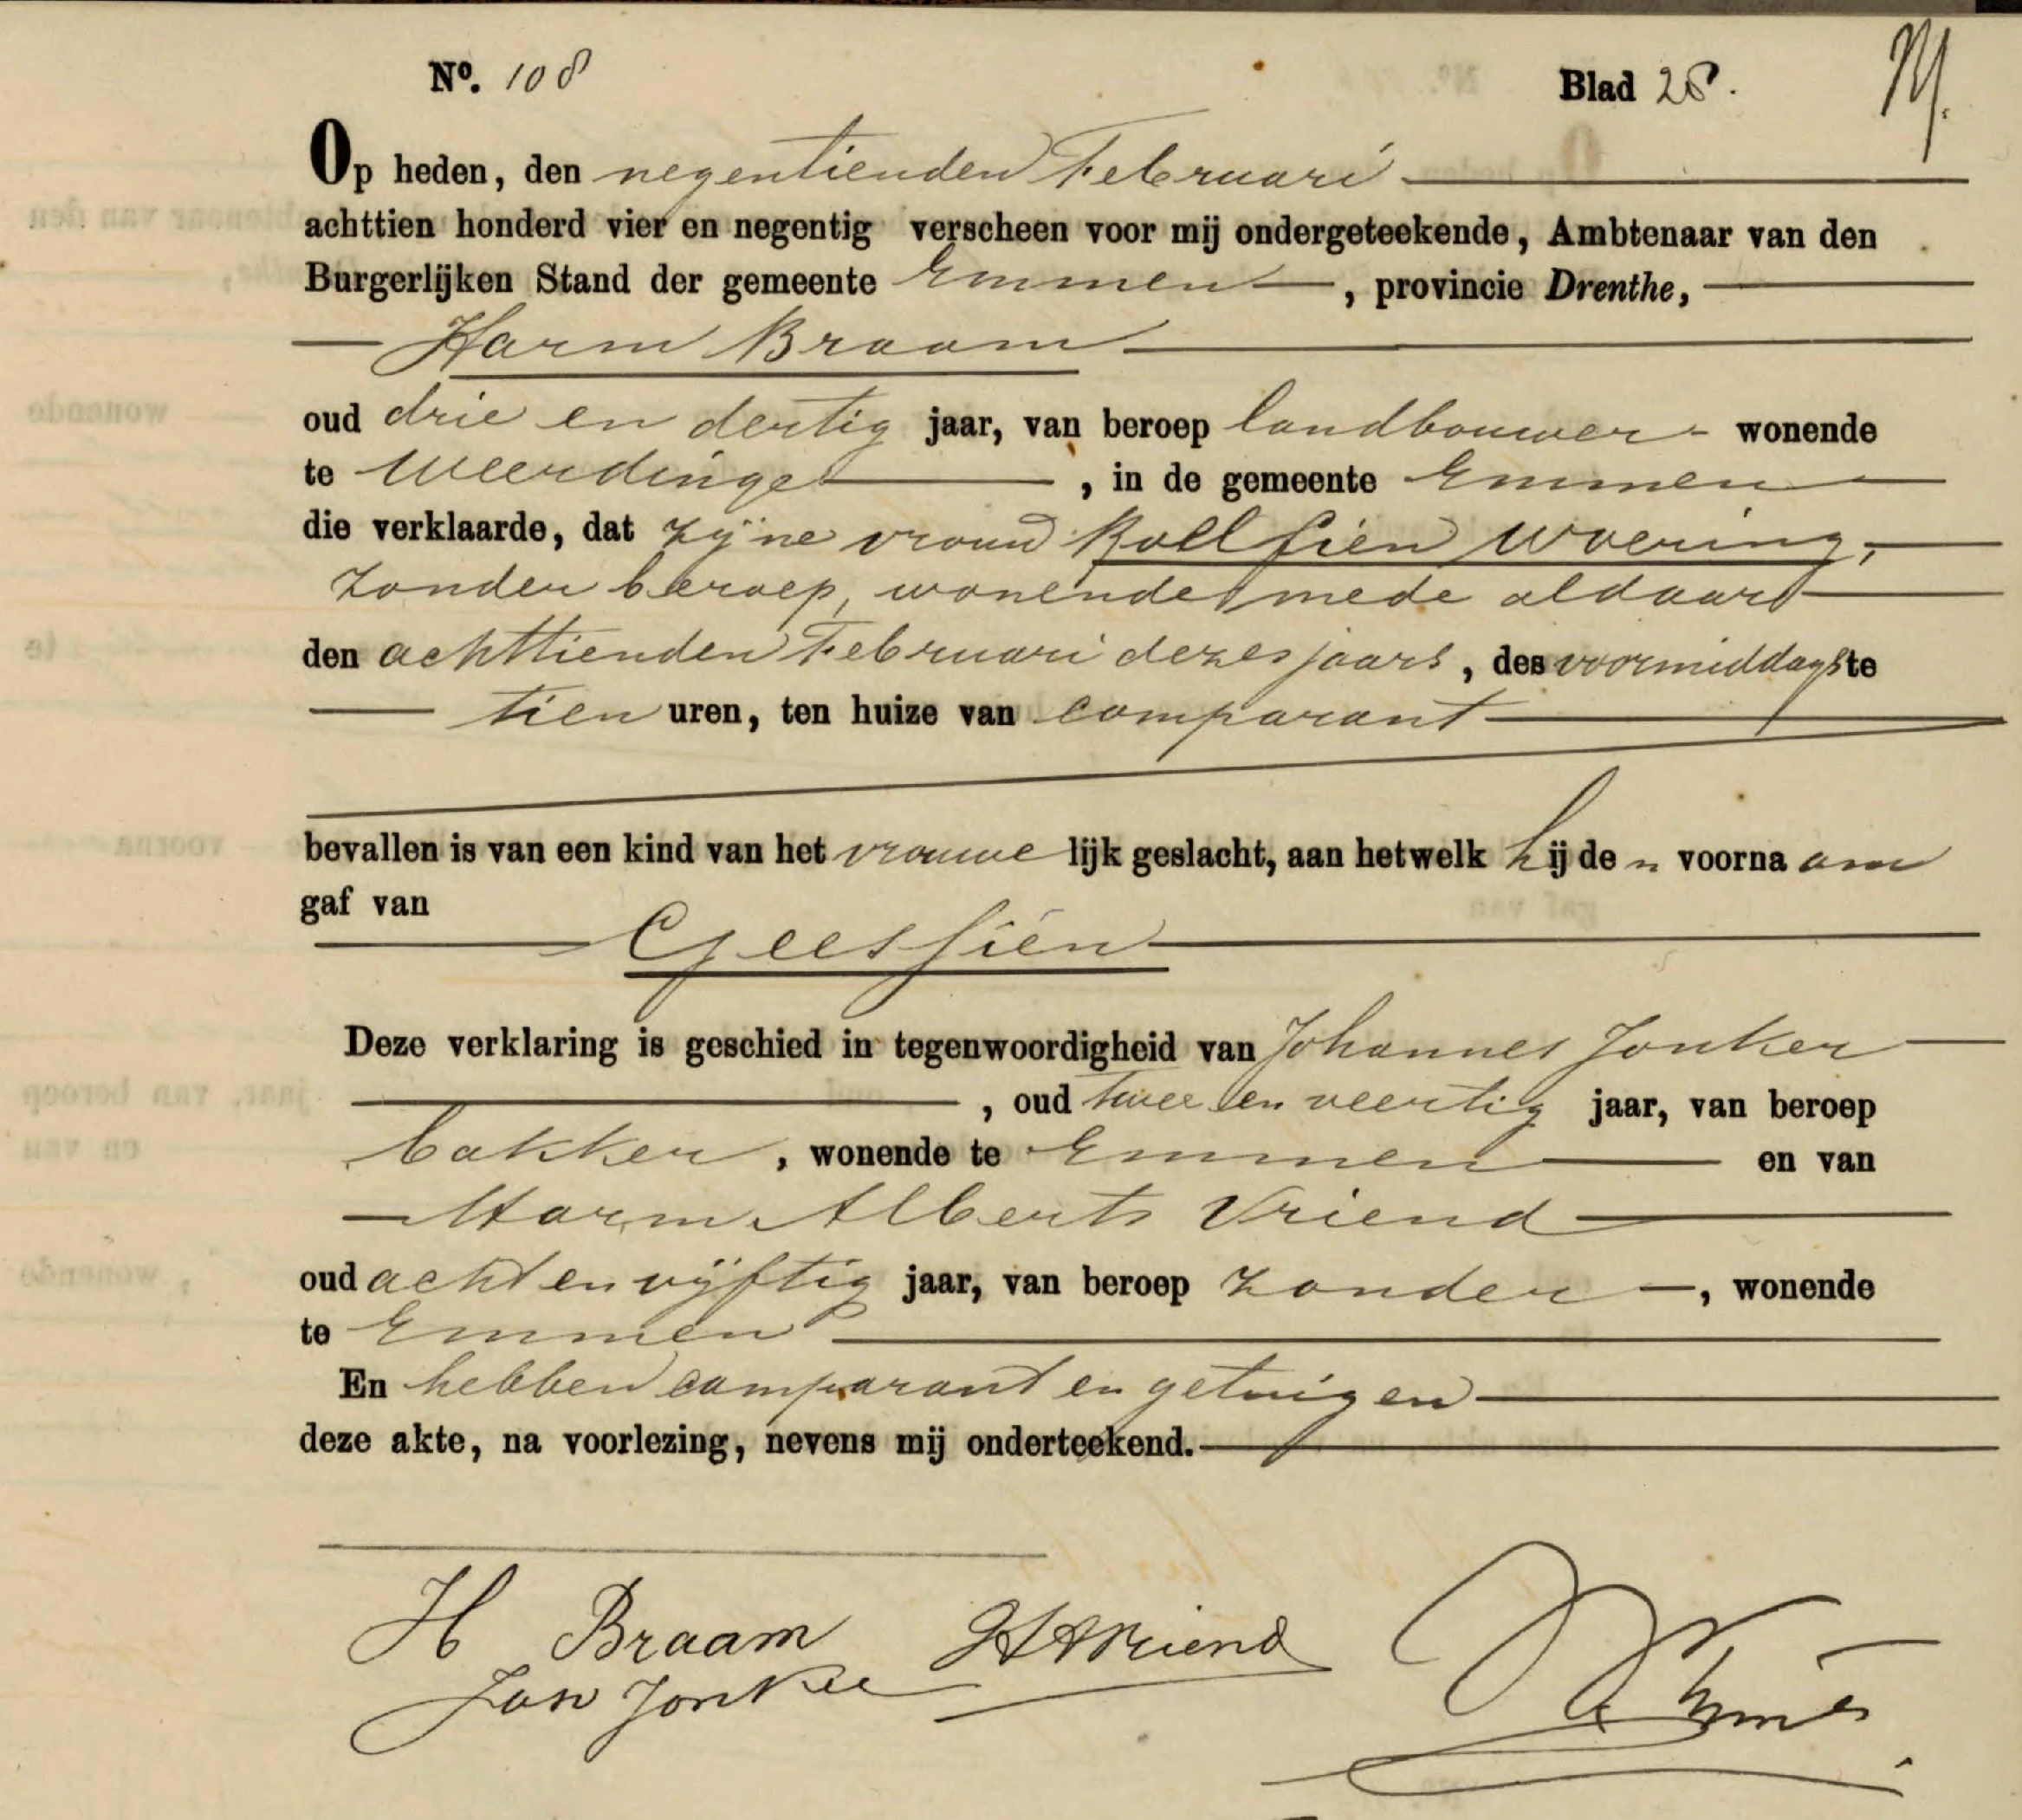 Nº. 108 Blad 28.
Op heden, den negentienden Februari
achttien honderd vier en negentig verscheen voor mij ondergeteekende, Ambtenaar van den
Burgerlijken Stand der gemeente Emmen, provincie Drenthe,
Harm Braam
oud drie en dertig jaar, van beroep landbouwer wonende
te Weerdinge, in de gemeente Emmen
die verklaarde, dat zijne vrouw Roelfien Woering,
zonder beroep, wonende mede aldaar
den achttienden Februari dezes jaars, des voormiddags te
tien uren, ten huize van comparant
bevallen is van een kind van het vrouwelijk geslacht, aan hetwelk hij den voornaam
gaf van
Geessien
Deze verklaring is geschied in tegenwoordigheid van Johannes Jonker
, oud twee en veertig jaar, van beroep
bakker, wonende te Emmen en van
Harm Alberts Vriend
oud acht en vijftig jaar, van beroep zonder, wonende
te Emmen
En hebben comparant en getuigen
deze akte, na voorlezing, nevens mij onderteekend.
H Braam HAVriend
Jan Jonker